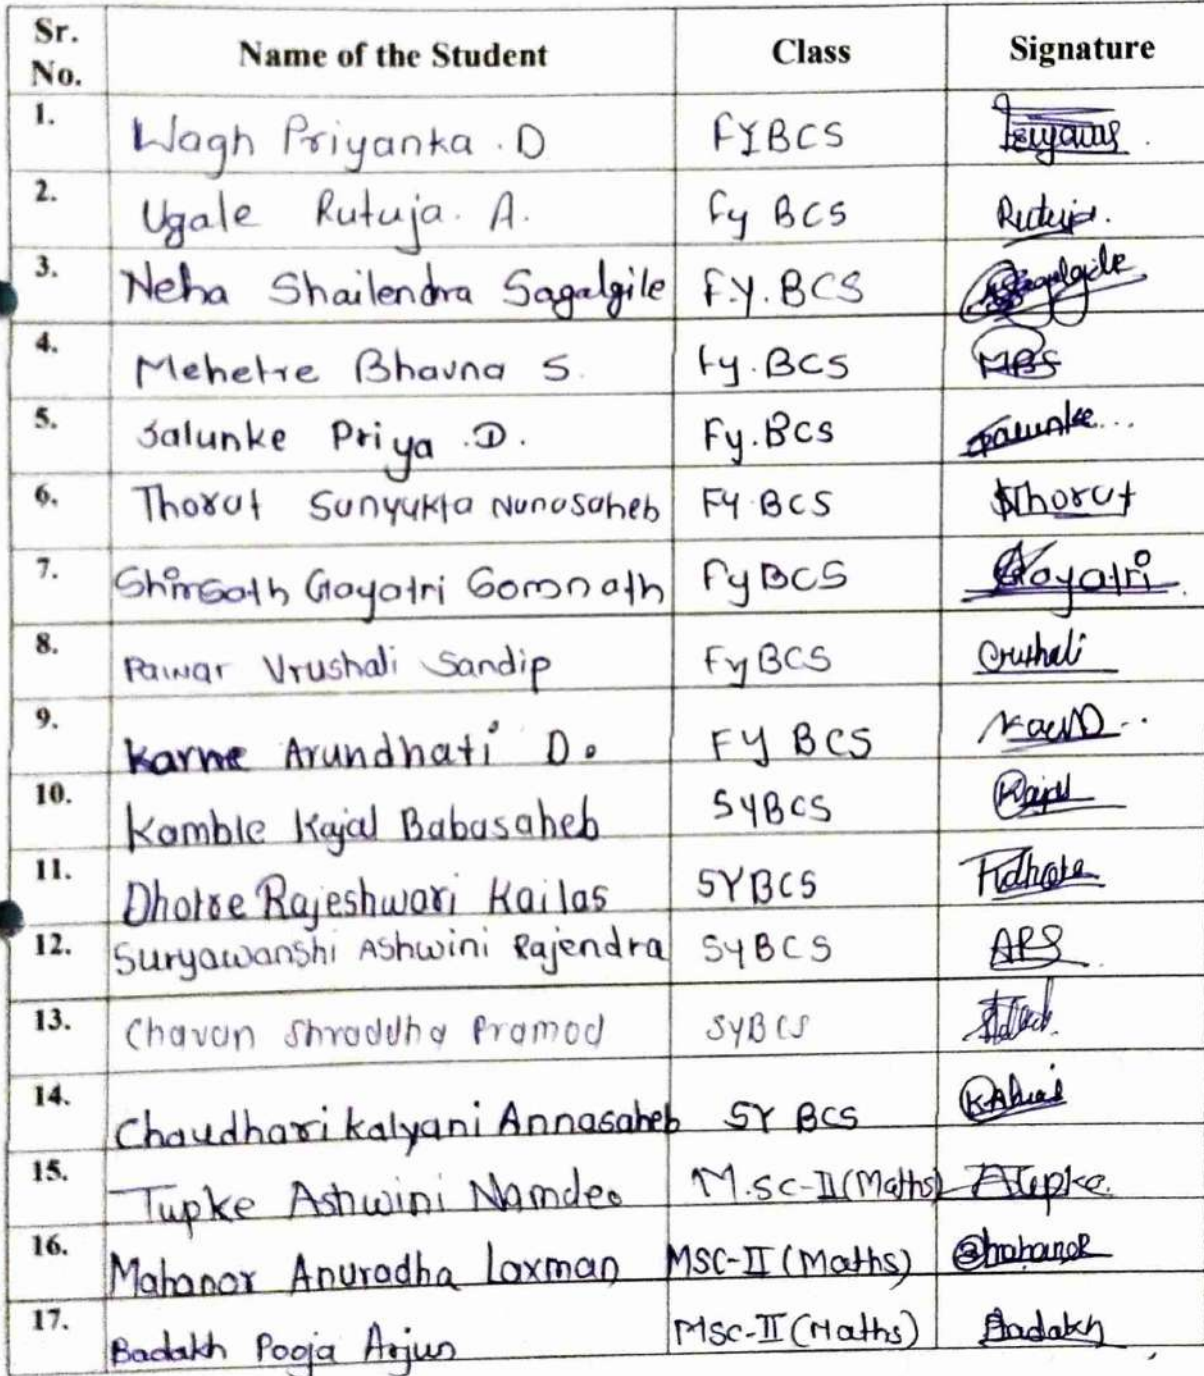 Sr. No. Name of the Student Class Signature
1. Wagh Priyanka . D FYBCS
2. Ugale Rutuja. A. Fy BCS Rutuja.
3. Neha Shailendra Sagalgile F.Y. BCS Sagalgile
4. Mehetre Bhavna S. Fy. BCS MBS
5. Salunke Priya .D. Fy.BCS Salunke...
6. Thorat Sanyukta Nanasaheb FY BCS SThorat
7. Shirsath Gayatri Somnath FyBCS Gayatri
8. Pawar Vrushali Sandip FyBCS Vrushali
9. Karne Arundhati D. FY BCS
10. Kamble Kajal Babasaheb SYBCS Kajal
11. Dhotre Rajeshwari Kailas SYBCS
12. Suryawanshi Ashwini Rajendra SyBCS ARS
13. Chavan Shraddha Pramod SYBCS
14. Chaudhari Kalyani Annasaheb SY BCS
15. Tupke Ashwini Namdeo M.sc-II (Maths) ATupke.
16. Mahanor Anuradha Laxman MSC-II (Maths)
17. Badakh Pooja Arjun MSC-II (Maths) Badakh